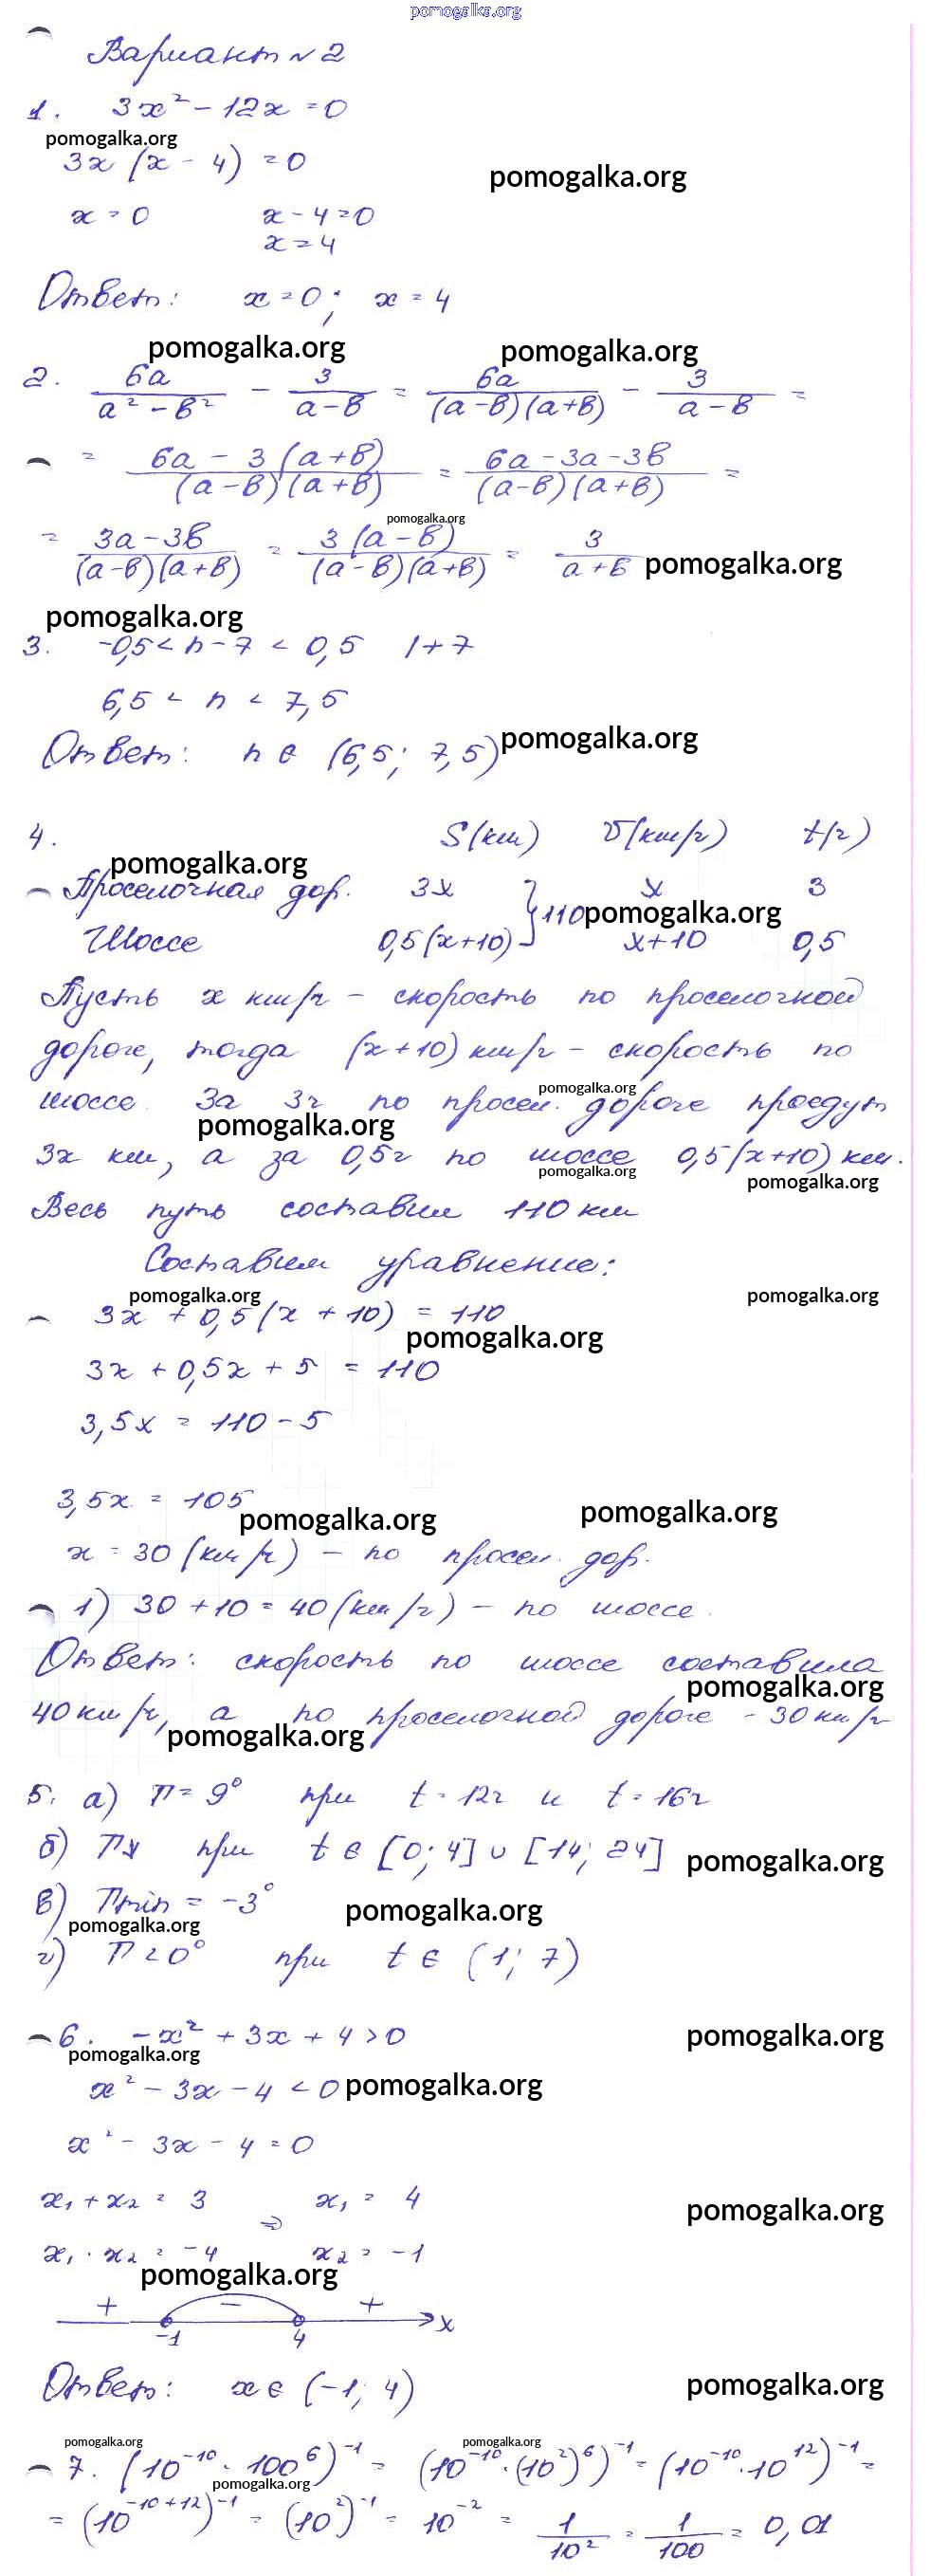 pomogalka.org
Вариант №2
1. 3x² - 12x = 0
pomogalka.org
3x (x - 4) = 0
pomogalka.org
x = 0 x - 4 = 0
x = 4
Ответ: x = 0; x = 4
pomogalka.org pomogalka.org
2. 6a/(a² - в²) - 3/(a - в) = 6a/((a - в)(a + в)) - 3/(a - в) =
= (6a - 3(a + в))/((a - в)(a + в)) = (6a - 3a - 3в)/((a - в)(a + в)) =
pomogalka.org
= (3a - 3в)/((a - в)(a + в)) = 3(a - в)/((a - в)(a + в)) = 3/(a + в) pomogalka.org
pomogalka.org
3. -0,5 < n - 7 < 0,5 /+7
6,5 < n < 7,5
Ответ: n ∈ (6,5; 7,5) pomogalka.org
4. S(км) υ(км/ч) t(ч)
pomogalka.org
Проселочная дор. 3x } 110 x 3
pomogalka.org
Шоссе 0,5(x+10) x+10 0,5
Пусть x км/ч - скорость по проселочной
дороге, тогда (x+10) км/ч - скорость по
pomogalka.org
шоссе. За 3ч по просел. дороге проедут
pomogalka.org
3x км, а за 0,5ч по шоссе 0,5(x+10) км.
pomogalka.org pomogalka.org
Весь путь составил 110 км
Составим уравнение:
pomogalka.org pomogalka.org
3x + 0,5(x + 10) = 110
pomogalka.org
3x + 0,5x + 5 = 110
3,5x = 110 - 5
3,5x = 105
pomogalka.org pomogalka.org
x = 30 (км/ч) - по просел. дор.
1) 30 + 10 = 40 (км/ч) - по шоссе.
Ответ: скорость по шоссе составила
pomogalka.org
40 км/ч, а по проселочной дороге - 30 км/ч
pomogalka.org
5. а) П = 9° при t = 12ч и t = 16ч
б) П↘ при t ∈ [0; 4] ∪ [14; 24] pomogalka.org
в) Пmin = -3° pomogalka.org
pomogalka.org
г) П < 0° при t ∈ (1; 7)
6. -x² + 3x + 4 > 0 pomogalka.org
pomogalka.org
x² - 3x - 4 < 0 pomogalka.org
x² - 3x - 4 = 0
x₁ + x₂ = 3 ⇒ x₁ = 4 pomogalka.org
x₁ · x₂ = -4 x₂ = -1
pomogalka.org
+ - + x
-1 4
Ответ: x ∈ (-1; 4) pomogalka.org
pomogalka.org pomogalka.org
7. (10⁻¹⁰ · 100⁶)⁻¹ = (10⁻¹⁰ · (10²)⁶)⁻¹ = (10⁻¹⁰ · 10¹²)⁻¹ =
pomogalka.org
= (10⁻¹⁰⁺¹²)⁻¹ = (10²)⁻¹ = 10⁻² = 1/10² = 1/100 = 0,01